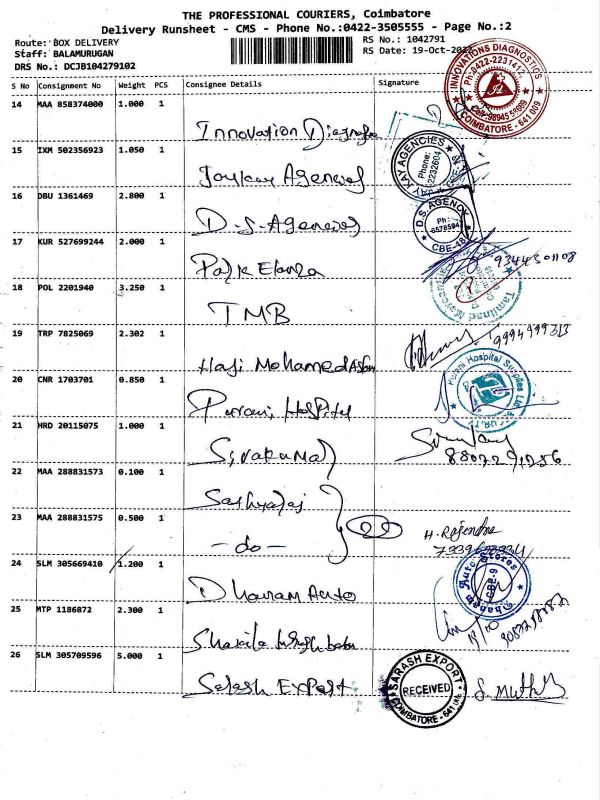 THE PROFESSIONAL COURIERS, Coimbatore
Delivery Runsheet - CMS - Phone No.:0422-3505555 - Page No.:2
Route: BOX DELIVERY
RS No.: 1042791
Staff: BALAMURUGAN
RS Date: 19-Oct-
DRS No.: DCJB104279102
S No Consignment No Weight PCS Consignee Details Signature
14 MAA 858374000 1.000 1
Innovation
INNOVATIONS DIAGNOSTICS
Ph:0422-2231412
COIMBATORE - 641 009
15 IXM 502356923 1.050 1
Jaykay Agencies
JAY KAY AGENCIES
Phone:
2232604
16 DBU 1361469 2.800 1
D.S.Agencies
D.S. AGENCY
Ph:
6578594
CBE-18
17 KUR 527699244 2.000 1
9344301108
18 POL 2201940 3.250 1
TMB
Tamilnad Mercantile
19 TRP 7825069 2.302 1
Haji Mohamed
9994999313
20 CNR 1703701 0.850 1
Purani Hospital
Purani Hospital Supplies
21 HRD 20115075 1.000 1
Sivakumar
22 MAA 288831573 0.100 1
Sathyaraj
23 MAA 288831575 0.500 1
- do -
H. Rajendra
24 SLM 305669410 1.200 1
Dhanam Auto
Dhanam Auto Stores
CBE-9
25 MTP 1186872 2.300 1
19/10
26 SLM 305709596 5.000 1
Sarash Export
SARASH EXPORT
RECEIVED
COIMBATORE - 641